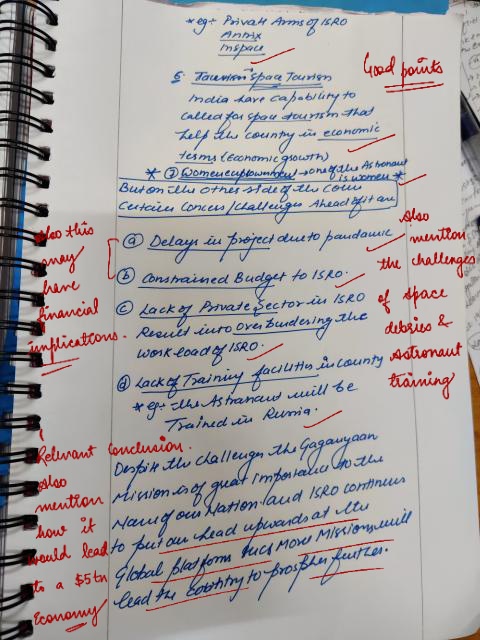 * eg:- Private Arms of ISRO
Antrix
Inspace
Good points
6. Tourism → Space Tourism
India have capability to
called for space tourism that
help the country in economic
terms (economic growth)
* ⑦ Women empowerment → one of the Astronaut
is women *
But on the other side of the coin
Certain Concern/challenges Ahead of it are
Also this
may
have
financial
implications.
ⓐ Delays in project due to pandamic
ⓑ Constrained Budget to ISRO.
ⓒ Lack of Private Sector in ISRO
Result into overburdering the
work load of ISRO.
ⓓ Lack of Training facilities in county
* eg:- the Astranaut will be
Trained in Russia.
Also
mention
the challenges
of space
debries &
Astronaut
training
Relevant conclusion.
Also
mention
how it
would lead
to a $5tn
Economy
Despite the challenges the Gaganyaan
Mission is of great importance to the
Name of our Nation and ISRO continues
to put our head upwards at the
Global platform such More Missions will
lead the country to prospher further.